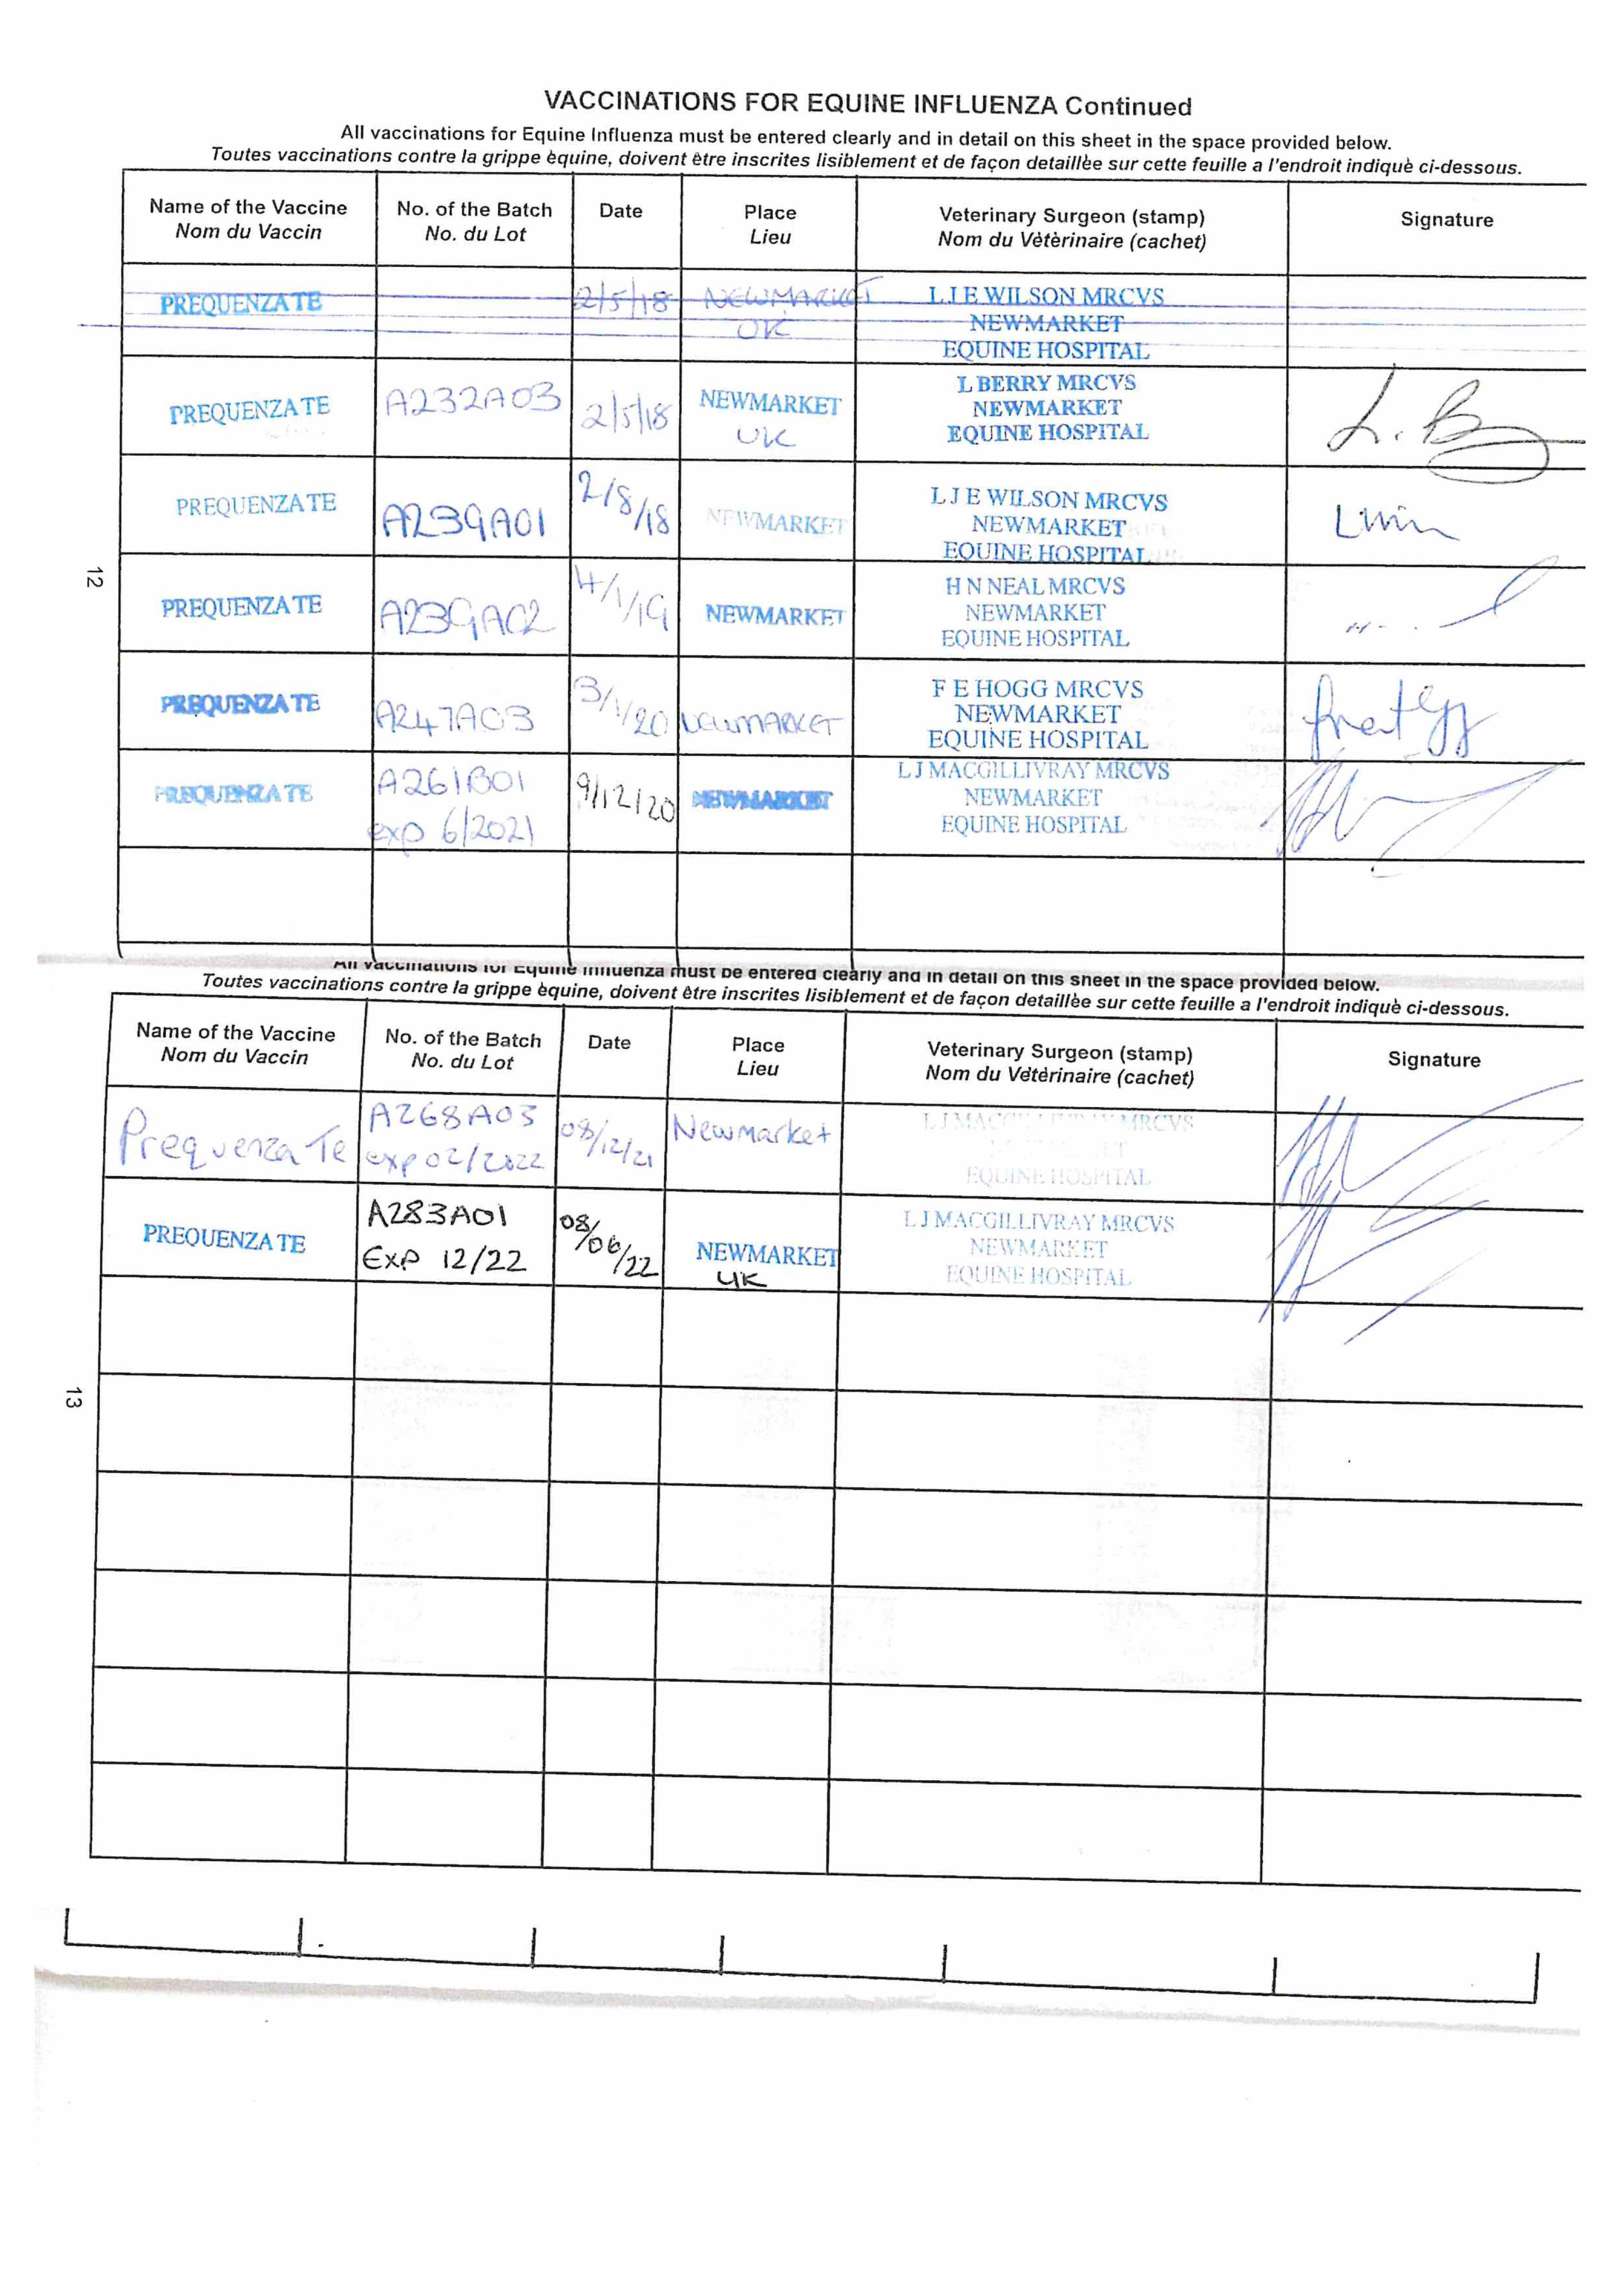 VACCINATIONS FOR EQUINE INFLUENZA Continued
All vaccinations for Equine Influenza must be entered clearly and in detail on this sheet in the space provided below.
Toutes vaccinations contre la grippe èquine, doivent être inscrites lisiblement et de façon detaillèe sur cette feuille a l'endroit indiquè ci-dessous.
Name of the Vaccine No. of the Batch Date Place Veterinary Surgeon (stamp) Signature
Nom du Vaccin No. du Lot Lieu Nom du Vètèrinaire (cachet)
PREQUENZA TE 2/5/18 NEWMARKET L J E WILSON MRCVS
UK NEWMARKET
EQUINE HOSPITAL
PREQUENZA TE A232A03 2/5/18 NEWMARKET L BERRY MRCVS L. B
UK NEWMARKET
EQUINE HOSPITAL
PREQUENZA TE A239A01 2/8/18 NEWMARKET L J E WILSON MRCVS
NEWMARKET
EQUINE HOSPITAL
12
PREQUENZA TE A239A02 4/1/19 NEWMARKET H N NEAL MRCVS
NEWMARKET
EQUINE HOSPITAL
PREQUENZA TE A247A03 3/1/20 NEWMARKET F E HOGG MRCVS
NEWMARKET
EQUINE HOSPITAL
PREQUENZA TE A261B01 9/12/20 NEWMARKET L J MACGILLIVRAY MRCVS
exp 6/2021 NEWMARKET
EQUINE HOSPITAL
All vaccinations for Equine Influenza must be entered clearly and in detail on this sheet in the space provided below.
Toutes vaccinations contre la grippe èquine, doivent être inscrites lisiblement et de façon detaillèe sur cette feuille a l'endroit indiquè ci-dessous.
Name of the Vaccine No. of the Batch Date Place Veterinary Surgeon (stamp) Signature
Nom du Vaccin No. du Lot Lieu Nom du Vètèrinaire (cachet)
Prequenza Te A268A03 08/12/21 Newmarket MRCVS
exp 02/2022
EQUINE HOSPITAL
PREQUENZA TE A283A01 08/06/22 NEWMARKET L J MACGILLIVRAY MRCVS
EXP 12/22 UK NEWMARKET
EQUINE HOSPITAL
13